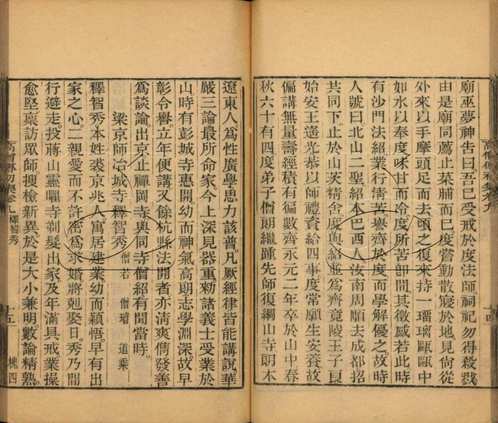 高僧傳初集卷九
十四
廟巫夢神告曰吾已受戒於度法師祠祀勿得殺戮
由是廟同薦止菜脯而已度嘗動散寢於地見尚從
外來以手摩頭足而去頃之復來持一瑠璃甌甌中
如水以奉度味甘而冷度所苦卽間其徵感若此時
有沙門法紹業行清苦譽齊於度而學解優之故時
人號曰北山二聖紹本巴西人汝南周顒去成都招
共同下止於山茨精舍度與紹並為齊竟陵王子良
始安王遙光恭以師禮資給四事度常願生安養故
偏講無量壽經積有遍數齊永元二年卒於山中春
秋六十有四度弟子僧朗繼踵先師復綱山寺朗本
遼東人為性廣學思力該普凡厥經律皆能講說華
嚴三論最所命家今上深見器重勅諸義士受業於
山時有彭城寺惠開幼而神氣高朗志學淵深故早
彰令譽立年便講又餘杭縣法開者亦清爽儁發善
為談論出京止禪岡寺與同寺僧紹有聞當時
梁京師冶城寺釋智秀 僧若 僧璿 道乘
釋智秀本姓裘京兆人寓居建業幼而穎悟早有出
家之心二親愛而不許密為求婚將剋娶日秀乃間
行避走投蔣山靈曜寺剃髮出家及年滿具戒業操
愈堅稟訪眾師搜檢新異於是大小兼明數論精熟
十五
桃四